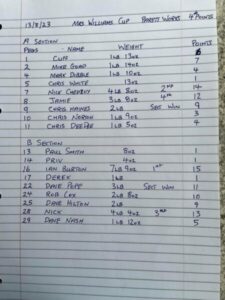 13/8/23 MRS WILLIAMS CUP BARFTS WORKS 4th POINTS
A SECTION
PEGS NAME WEIGHT POINTS
1 CLIFF 1LB 13oz
2 MIKE GOAD 1LB 14oz 7
4 MARK DIBBLE 1LB 10oz 4
5 CHRIS WHITE 13oz 1
7 NICK CHEDDY 4LB 8oz 2nd 14
8 JAMIE 3LB 8oz 4th 12
9 CHRIS HAINES 2LB SECT WIN 9
10 CHRIS NORTON 1LB 9oz 3
11 CHRIS 1LB 12oz 4
B SECTION
13 PAUL SMITH 8oz 1
14 PRIV 4oz 1
16 IAN BURTON 7LB 9oz 1st 15
17 DEREK 1LB 1
22 DAVE POPE 3LB SECT WIN 11
24 ROB COX 2LB 8oz 10
25 DAVE HILTON 2LB 9
28 NICK 4LB 4oz 3rd 13
29 DAVE NASH 1LB 12oz 5